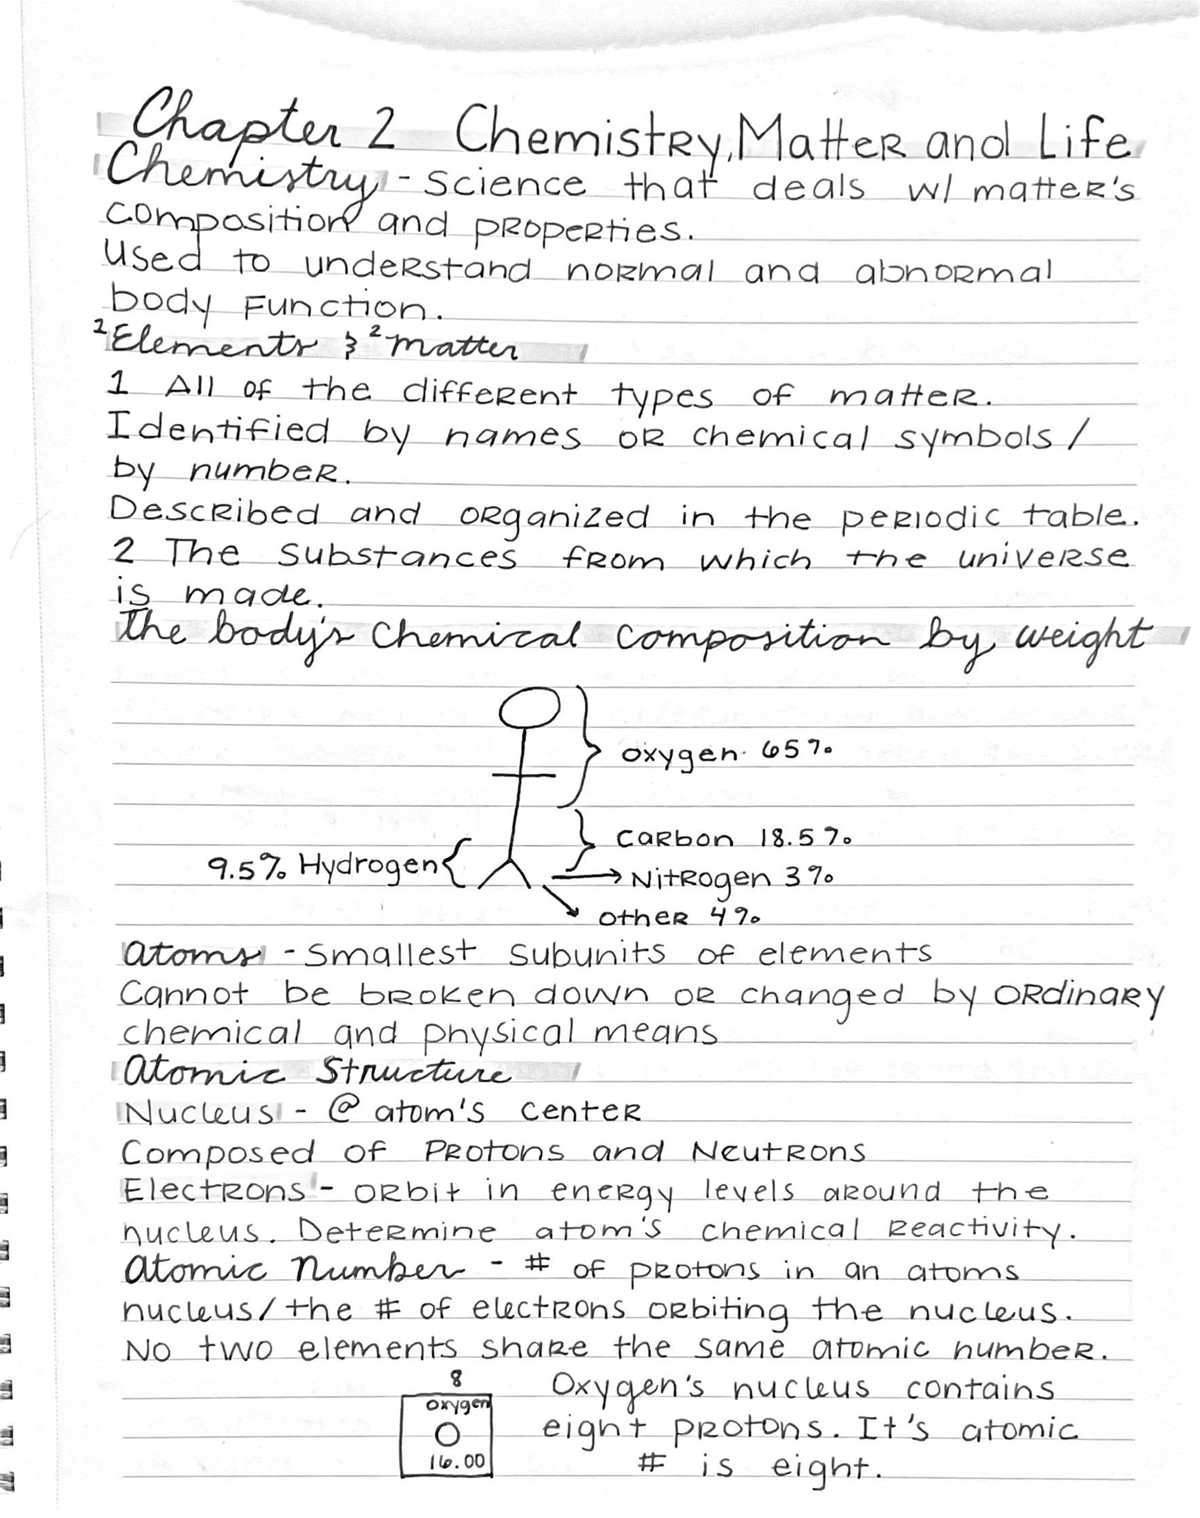 Chapter 2 Chemistry, Matter and Life
Chemistry - Science that deals w/ matter's
composition and properties.
Used to understand normal and abnormal
body Function.
²Elements & ²matter
1 All of the different types of matter.
Identified by names or chemical symbols /
by number.
Described and organized in the periodic table.
2 The substances from which the universe
is made.
The body's Chemical composition by weight
Oxygen 65%
Carbon 18.5%
9.5% Hydrogen
Nitrogen 3%
other 4%
Atoms - Smallest subunits of elements
Cannot be broken down or changed by ordinary
chemical and physical means
Atomic Structure
Nucleus - @ atom's center
Composed of Protons and Neutrons
Electrons - orbit in energy levels around the
nucleus. Determine atom's chemical reactivity.
Atomic Number - # of protons in an atoms
nucleus/the # of electrons orbiting the nucleus.
No two elements share the same atomic number.
8
oxygen
O
16.00
Oxygen's nucleus contains
eight protons. It's atomic
# is eight.